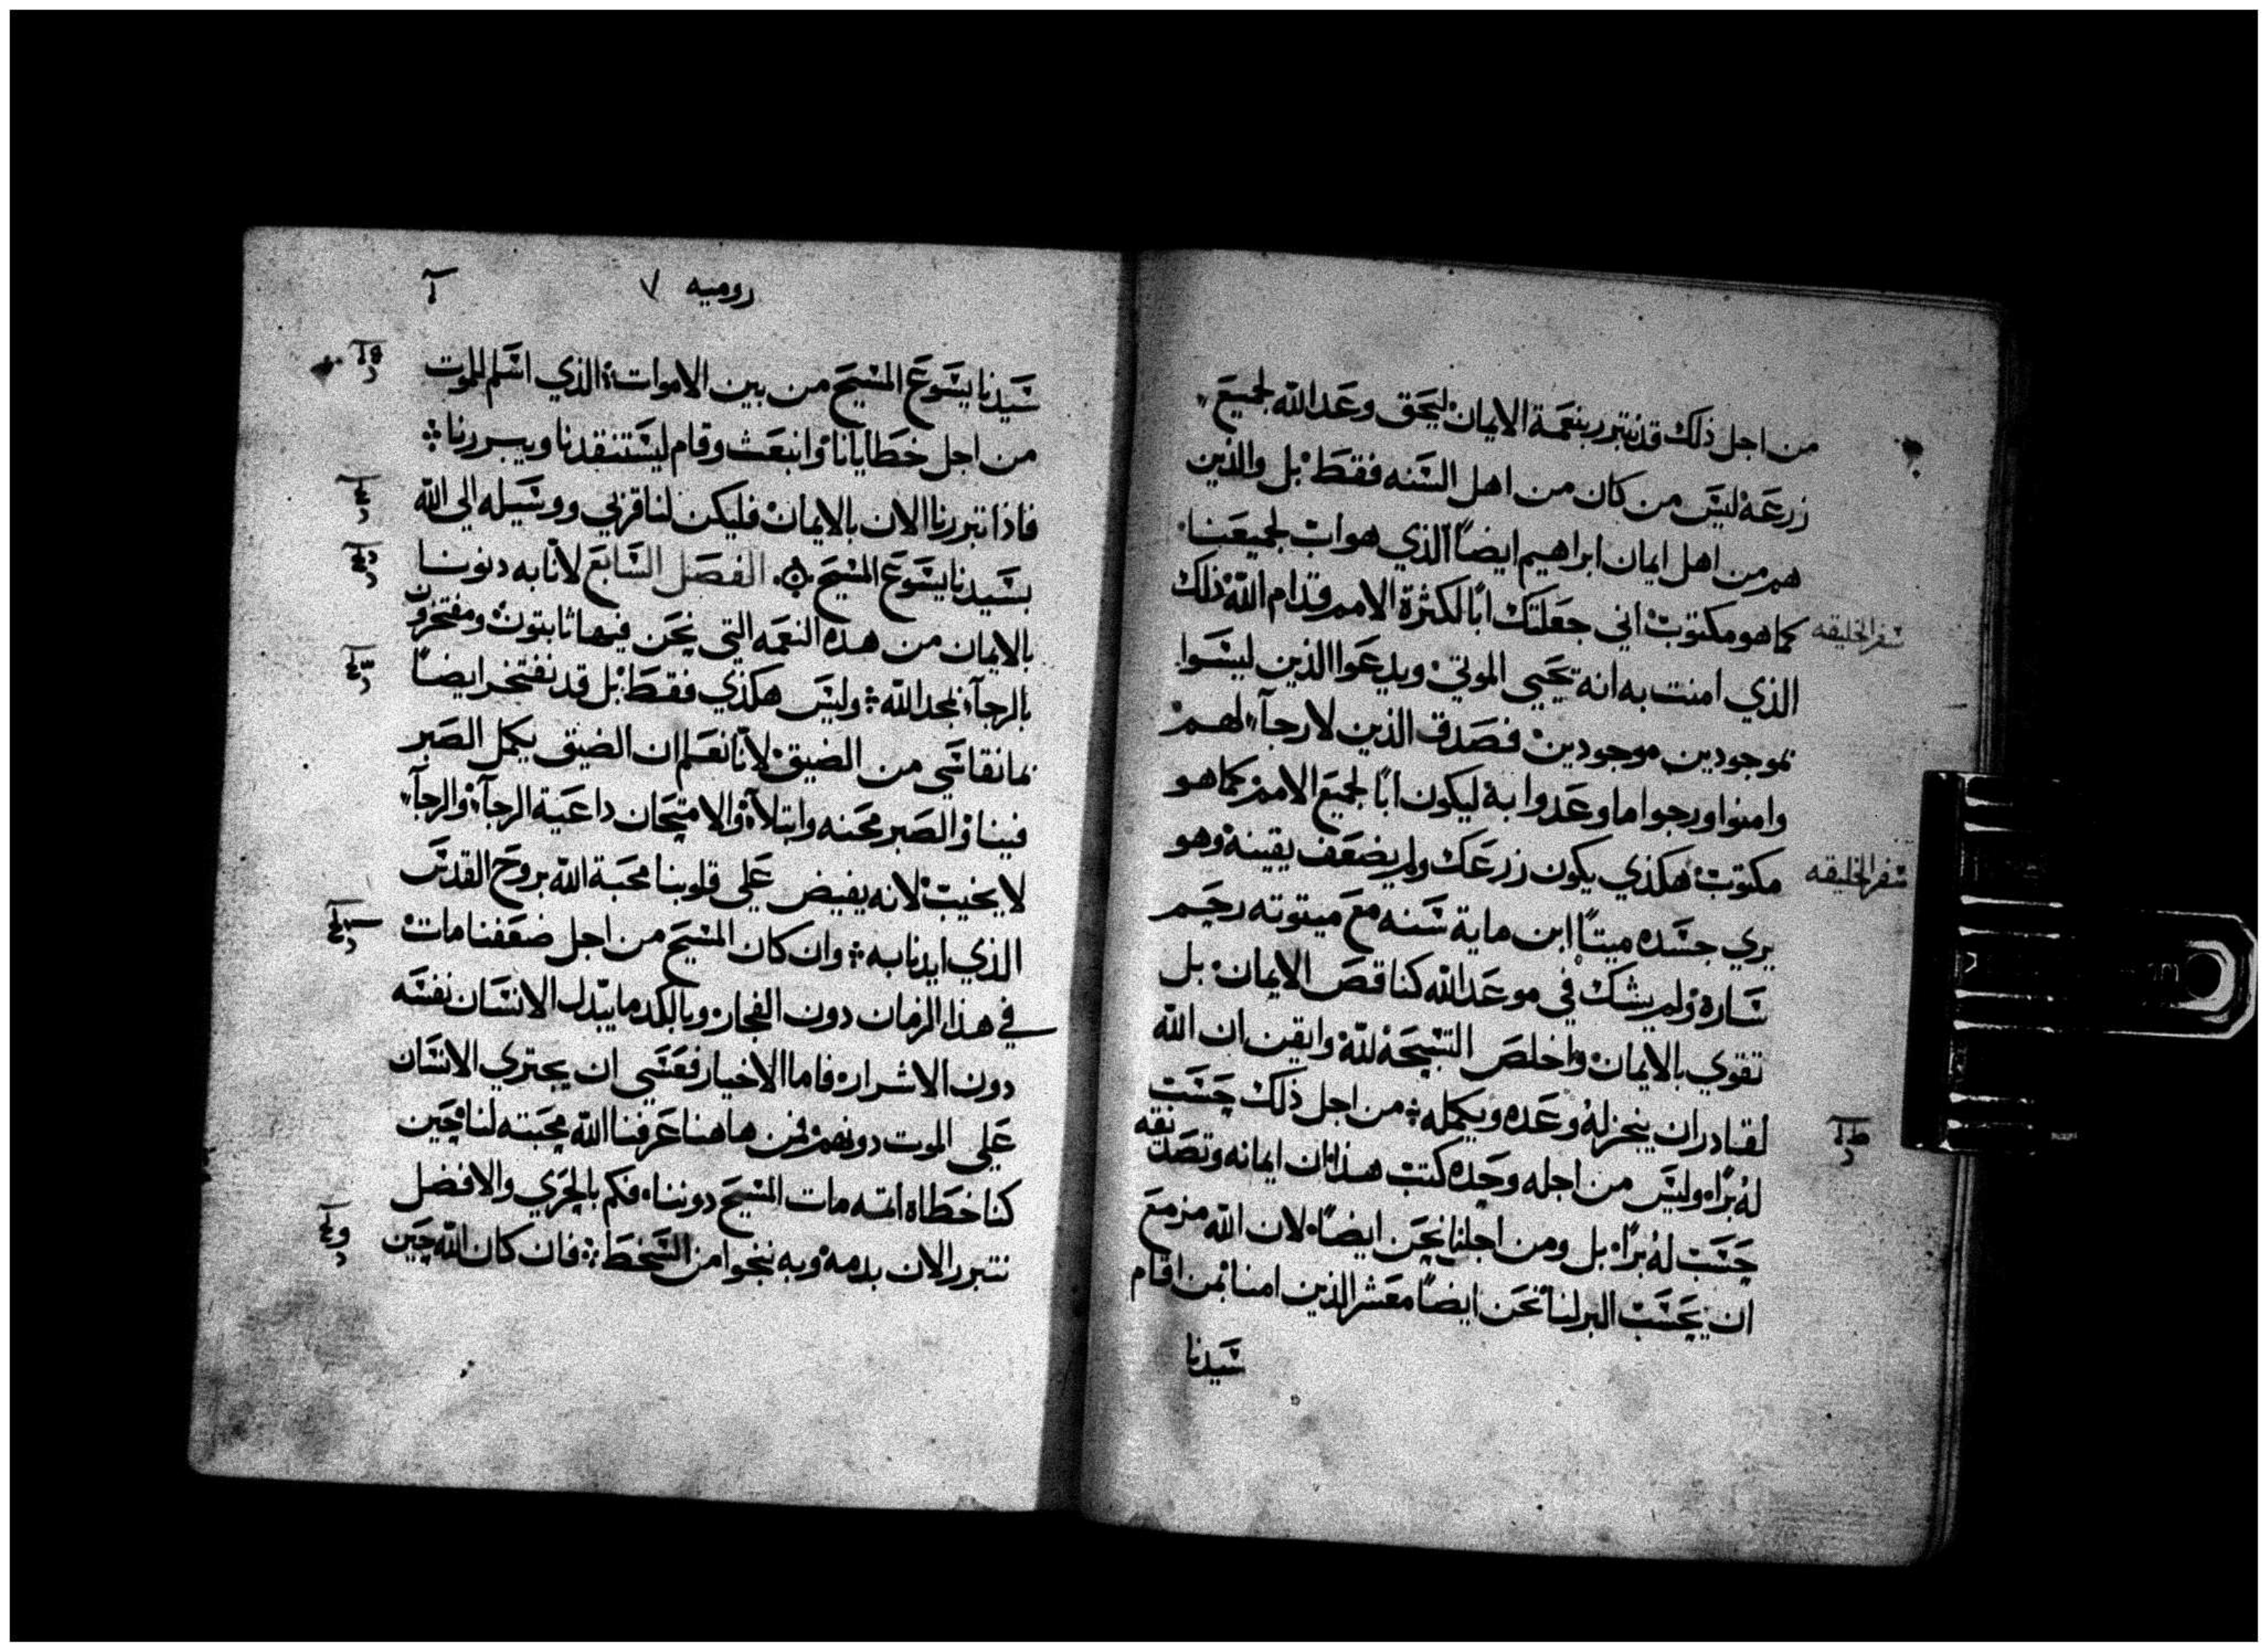 من اجل ذلك قد نتبرر بنعمة الايمان ليحق وعد الله لجميع
زرعه ليس من كان من اهل السنه فقط بل والذين
هم من اهل ايمان ابراهيم ايضاً الذي هو اب لجميعنا
سفر الخليقه
كما هو مكتوب اني جعلتك ابًا لكثرة الامم قدام الله ذلك
الذي امنت به انه يحيي الموتي ويدعوا الذين ليسوا
بموجودين موجودين فصدق الذين لا رجآء لهم
وامنوا ورجوا ما وعدوا به ليكون ابًا لجميع الامم كما هو
سفر الخليقه
مكتوب هكذي يكون زرعك ولم يضعف يقينه وهو
يري جسده ميتاً ابن ماية سنه مع ميتوته رحم
ساره ولم يشك في موعد الله كناقص الايمان بل
تقوي بالايمان واخلص التسبحة لله وايقن ان الله
لقادر ان ينجز له وعده ويكمله من اجل ذلك حسبت
له برًا وليس من اجله وحده كتب هذا ان ايمانه وتصديقه
حسب له برًا بل ومن اجلنا نحن ايضاً لان الله مزمع
ان يحسب البر لنا نحن ايضاً معشر الذين امنا بمن اقام
سيدنا
روميه ٧
سيدنا يسوع المسيح من بين الاموات الذي اسلم للموت
من اجل خطايانا وانبعث وقام ليستنقدنا ويبررنا
فاذا تبررنا الان بالايمان فليكن لنا قربي ووسيله الي الله
بسيدنا يسوع المسيح الفصل السابع لانّا به دنونا
بالايمان من هذه النعمه التي نحن فيها ثابتون ومفتخرون
بالرجآء بمجد الله وليس هكذي فقط بل قد نفتخر ايضاً
بما نقاسي من الضيق لانّا نعلم ان الضيق يكمل الصبر
فينا والصبر محنه وابتلآء والامتحان داعية الرجآء والرجآء
لا يخيب لانه يفيض علي قلوبنا محبة الله بروح القدس
الذي ايدنا به وان كان المسيح من اجل ضعفنا مات
في هذا الزمان دون الفجار وبالكد ما يبدل الانسان نفسه
دون الاشرار فاما الاخيار فعسي ان يجتري الانسان
علي الموت دونهم فمن هاهنا عرفنا الله محبته لنا حين
كنا خطاه اثمه مات المسيح دوننا فكم بالحري والافضل
نتبرر الان بدمه وبه ننجوا من السخط فان كان الله حين